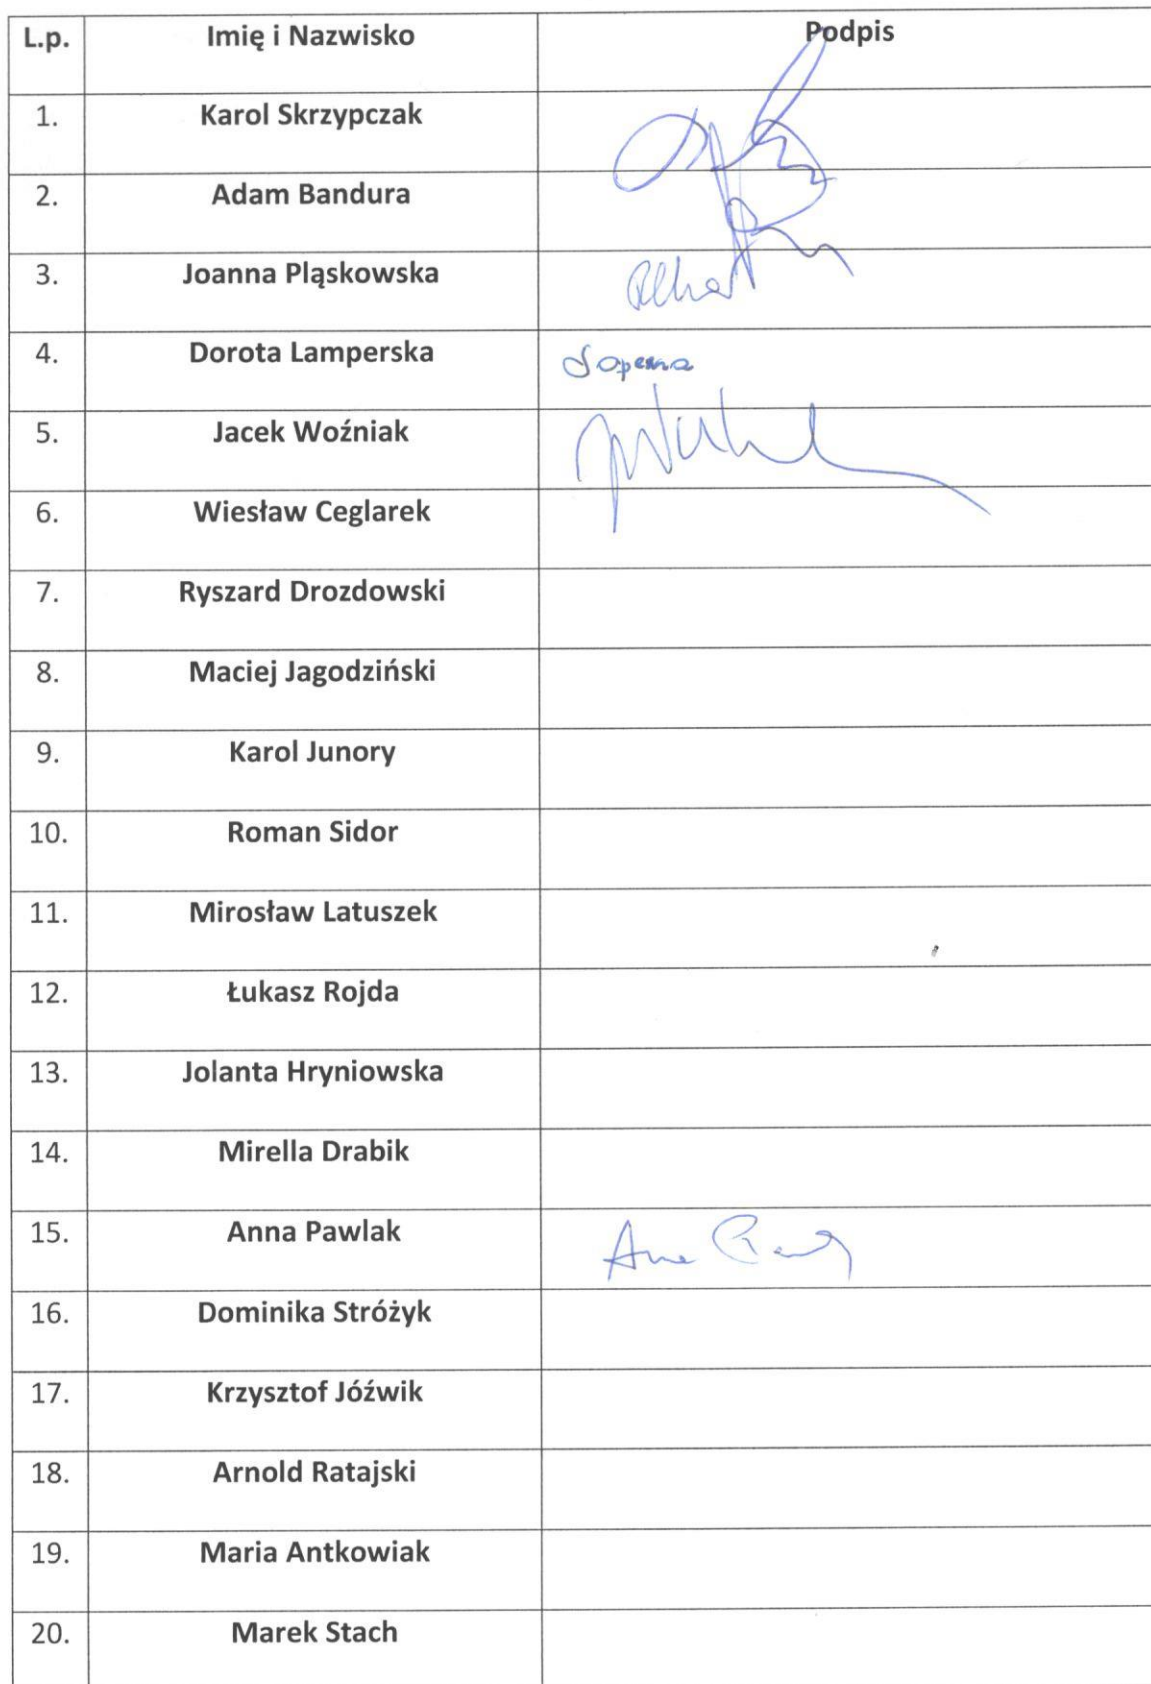 L.p. Imię i Nazwisko Podpis
1. Karol Skrzypczak
2. Adam Bandura
3. Joanna Pląskowska
4. Dorota Lamperska
5. Jacek Woźniak
6. Wiesław Ceglarek
7. Ryszard Drozdowski
8. Maciej Jagodziński
9. Karol Junory
10. Roman Sidor
11. Mirosław Latuszek
12. Łukasz Rojda
13. Jolanta Hryniowska
14. Mirella Drabik
15. Anna Pawlak
16. Dominika Stróżyk
17. Krzysztof Jóźwik
18. Arnold Ratajski
19. Maria Antkowiak
20. Marek Stach